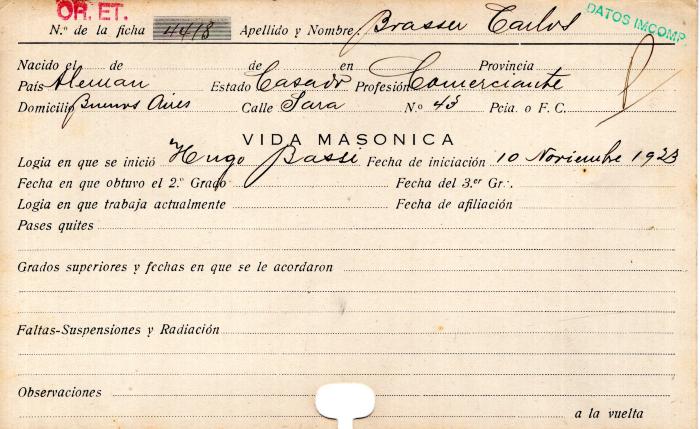 OR. ET.
DATOS IMCOMP.
N.º de la ficha 4418 Apellido y Nombre Brasser Carlos
Nacido el de de en Provincia
País Aleman Estado Casado Profesión Comerciante
Domicilio Buenos Aires Calle Sara N.º 43 Pcia. o F. C.
VIDA MASONICA
Logia en que se inició Hugo Bassi Fecha de iniciación 10 Noviembre 1923
Fecha en que obtuvo el 2.º Grado Fecha del 3.er Gr.·.
Logia en que trabaja actualmente Fecha de afiliación
Pases quites
Grados superiores y fechas en que se le acordaron
Faltas-Suspensiones y Radiación
Observaciones
a la vuelta